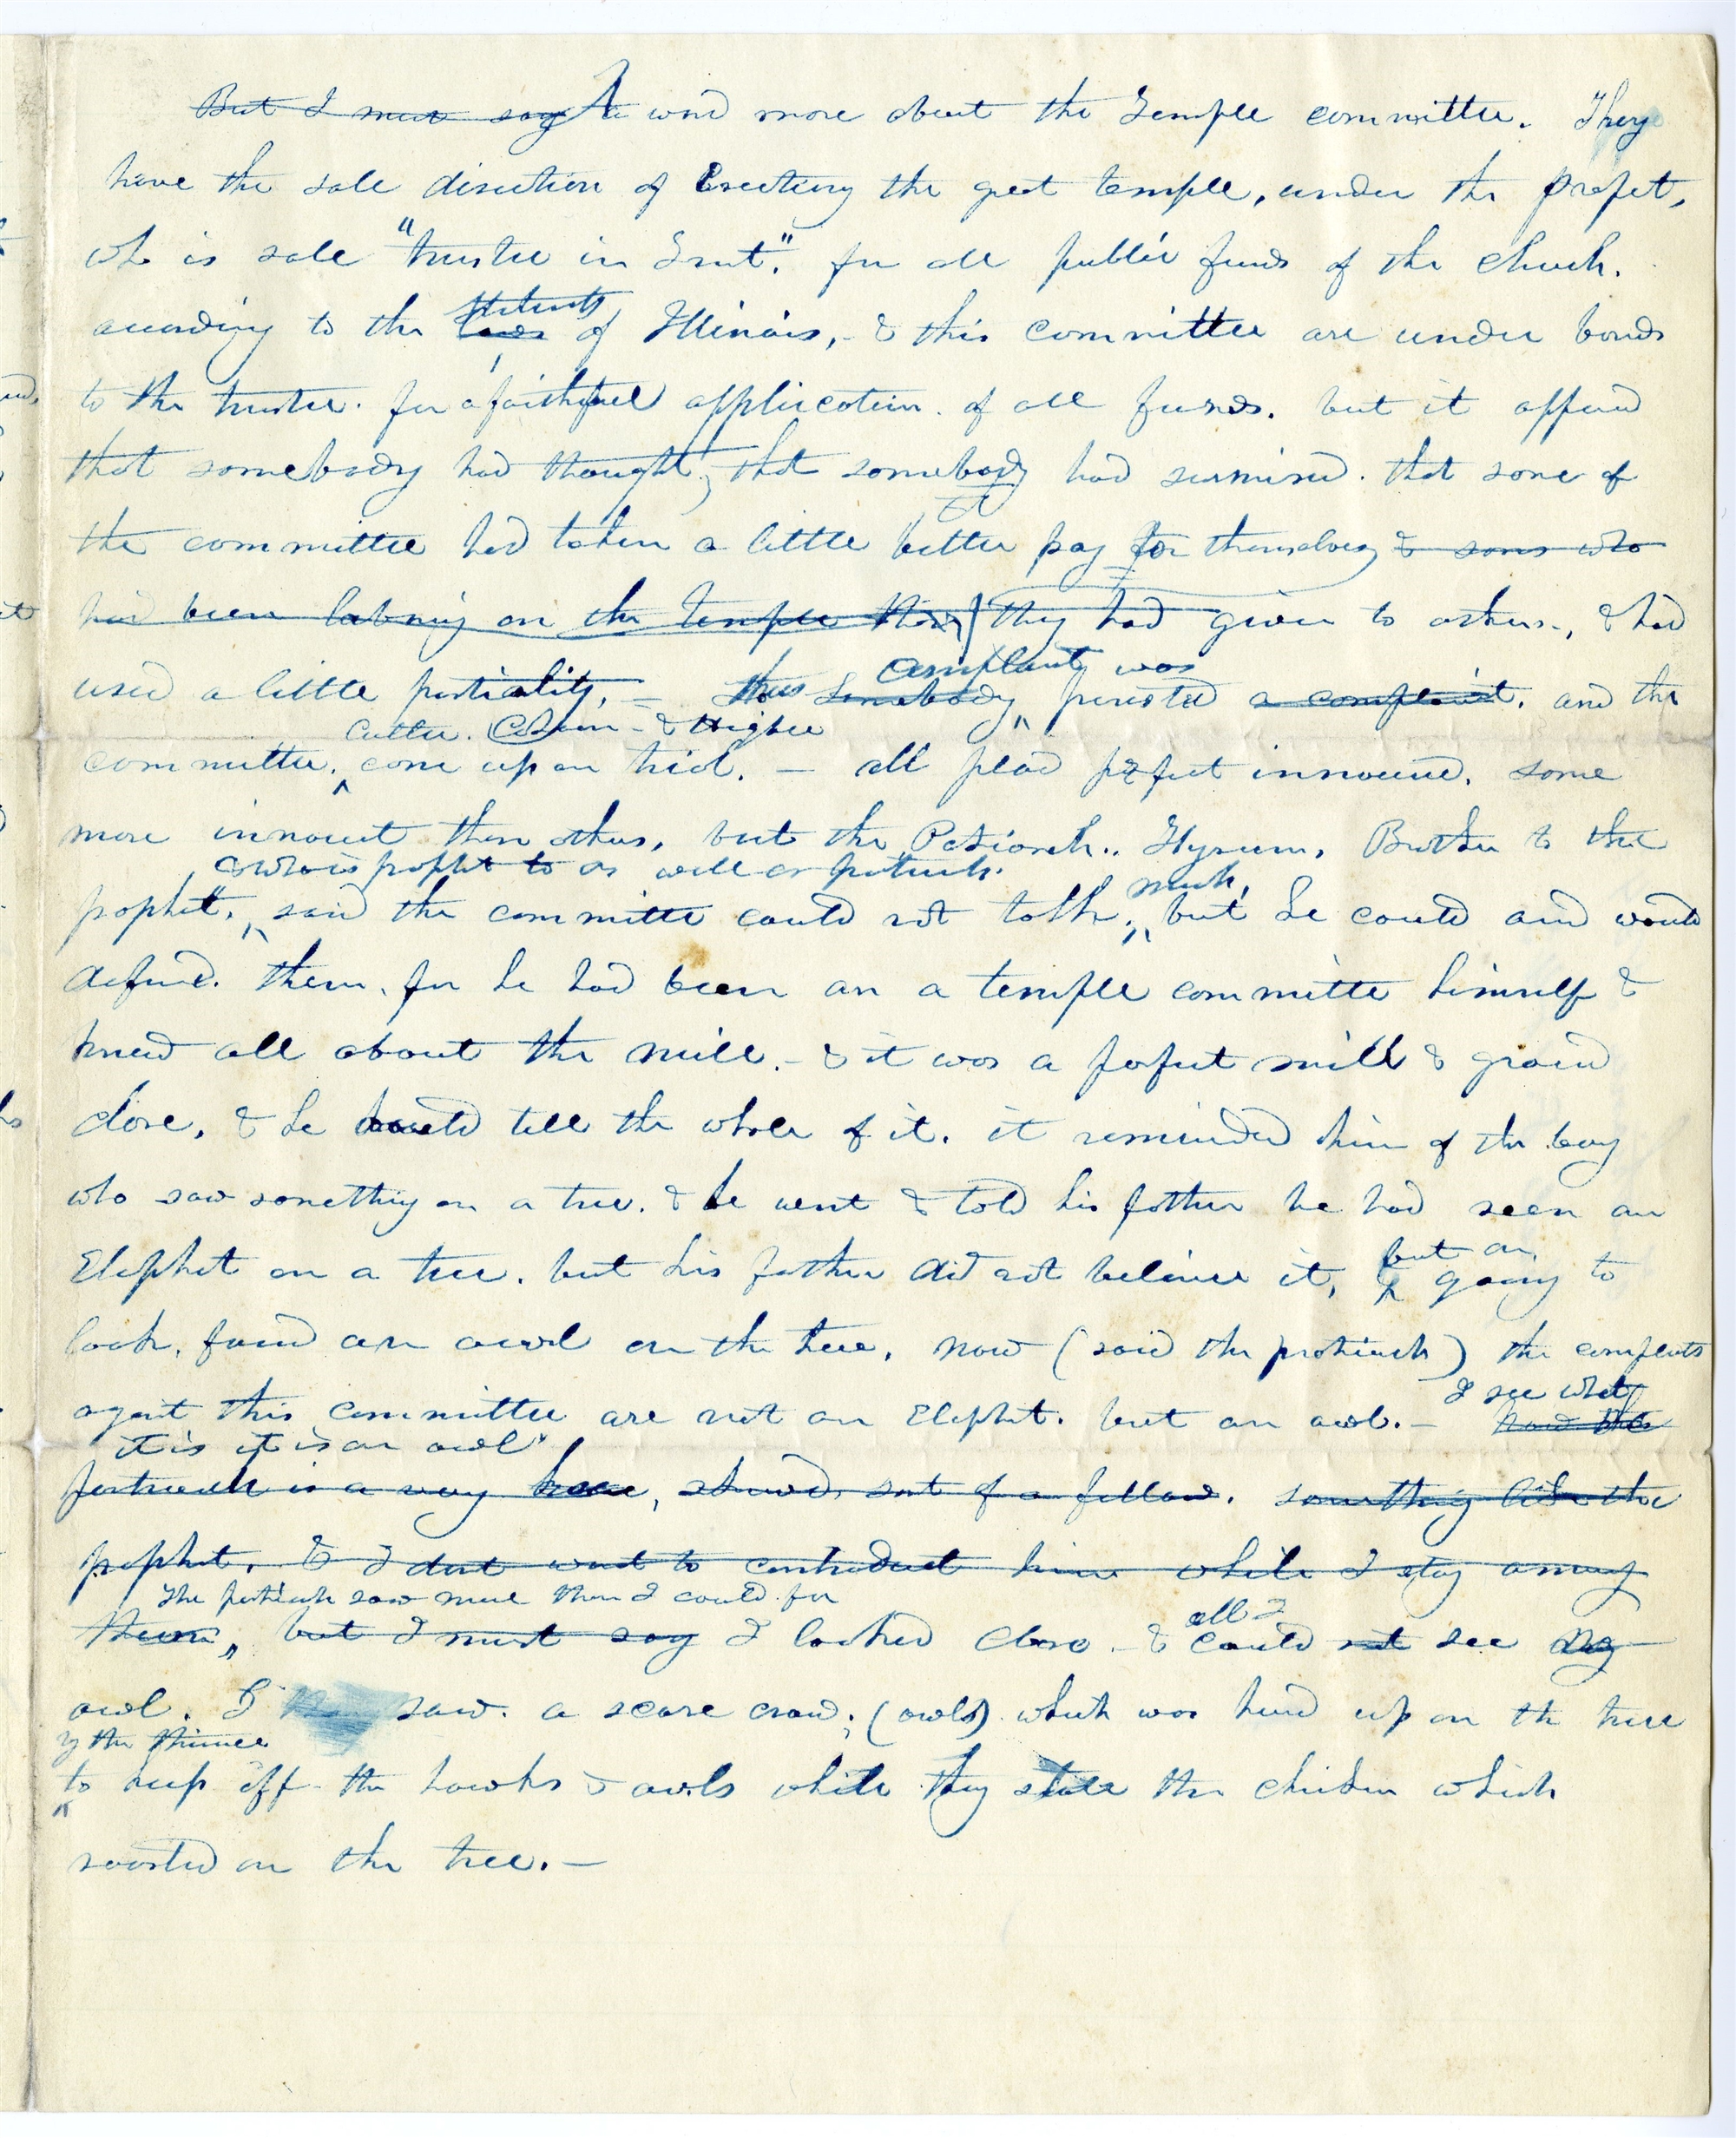 But I must say A word more about the Temple committee. They
have the sole direction of Erecting the great temple, under the profet,
who is sole "trustee in Trust." for all public funds of the church.
statutes
according to the laws of Illinois, - & this committee are under bonds
to the trustee. for a faithful application of all funds. but it appeared
that somebody had thought, that somebody had surmised. that some of
the committee had taken a little better pay for themselves & sons who
had been laboring on the temple than they had given to others, & had
complaint was
used a little partiality. — this somebody presented a complaint. and the
Cutler. Cahoon - & Higbee
committee, come up on trial. — all plead perfect innocence. some
more innocent than others, but the Patriarch.. Hyrum, Brother to the
& who is prophet to as well as patriarch.
much,
prophet, said the committee could not talk, but he could and would
defend. them, for he had been on a temple committee himself &
knew all about the mill. - & it was a perfect mill & ground
close, & he could tell the whole of it. it reminded him of the boy
who saw something on a tree. & he went & told his father he had seen an
but on
Elephant on a tree. but his father did not believe it, & going to
look, found an owl on the tree, now (said the patriarch) the complaints
I see what
against this committee are not an Elephant. but an owl. — now the
it is it is an owl"
patriarch is a very , shrewd, sort of a fellow. something like the
prophet, & I dont want to contradict him while I stay among
The patriarch saw more than I could. for
all I
them, but I must say I looked close - & could not see any
owl. I saw. a scare crow, (owls) which was hung up on the tree
by the thieves
to keep off the hawks & owls while they stole the chicken which
roosted on the tree. —